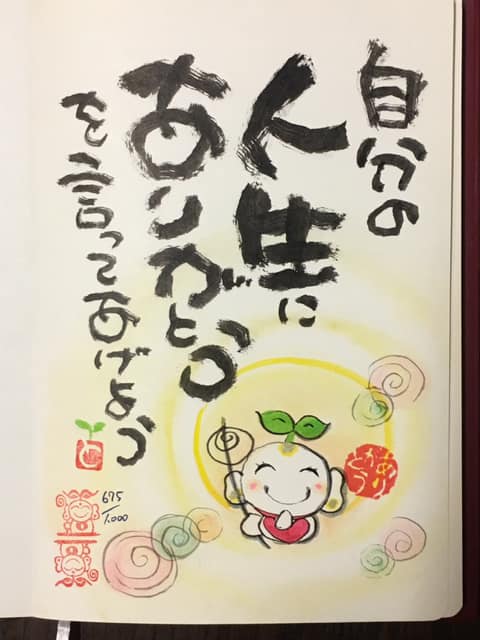 自分の
人生に
ありがとう
を言ってあげよう
675/1,000